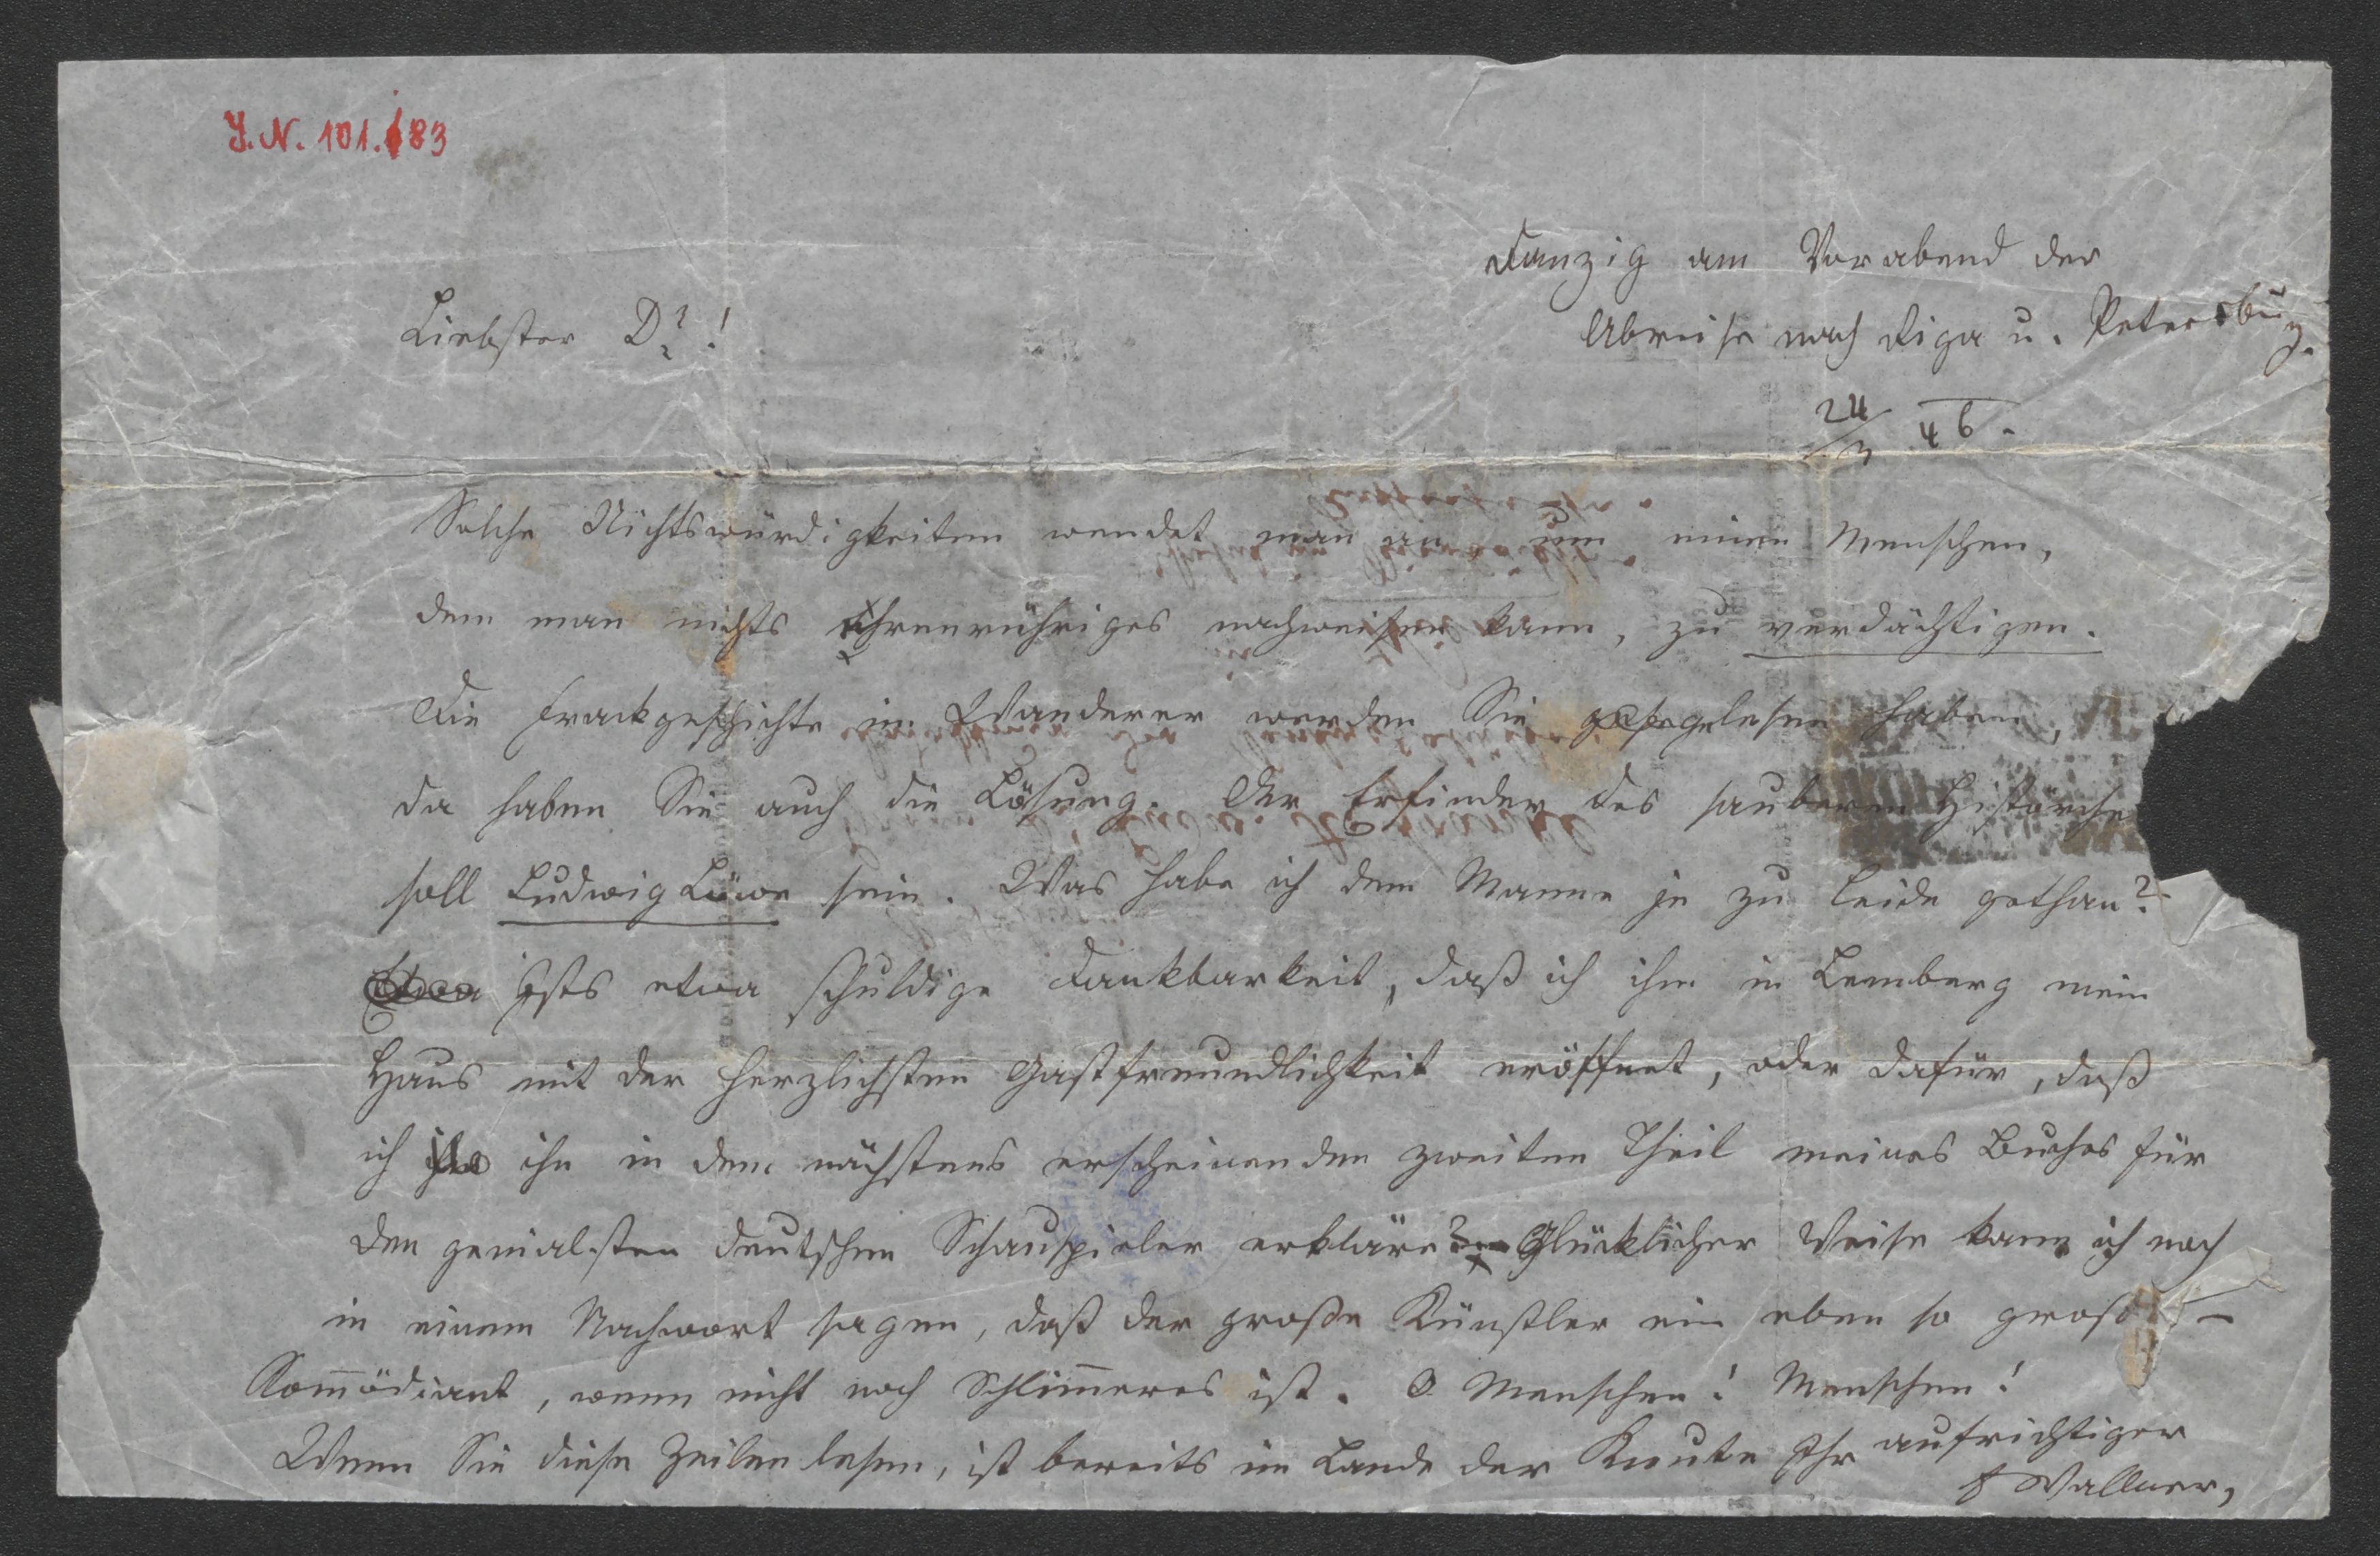 J.N. 101.183
Danzig am Vorabend der
Liebster Dr!
Abreise nach Riga u. Petersburg.
24/3 46.
Solche Nichtswürdigkeiten wendet man an um einen Menschen,
dem man nichts Ehrenrühriges nachweisen kann, zu verdächtigen.
Die Frackgeschichte im Wanderer werden Sie gelesen haben,
da haben Sie auch die Lösung. Der Erfinder des sauberen Histörche
soll Ludwig Löwe sein. Was habe ich dem Manne je zu Leide gethan?
Ists etwa schuldige Dankbarkeit, daß ich ihm in Lemberg mein
Haus mit der herzlichsten Gastfreundlichkeit eröffnet, oder dafür, daß
ich ihn in dem nächstens erscheinenden zweiten Theil meines Buches für
den genialsten deutschen Schauspieler erkläre? Glücklicher Weise kann ich noch
in einem Nachwort sagen, daß der große Künstler ein eben so groß
Kom̅ödiant, wenn nicht noch Schlim̅eres ist. O Menschen! Menschen!
Wenn Sie diese Zeilen lesen, ist bereits im Lande der Knute Ihr aufrichtiger
F Wallner,